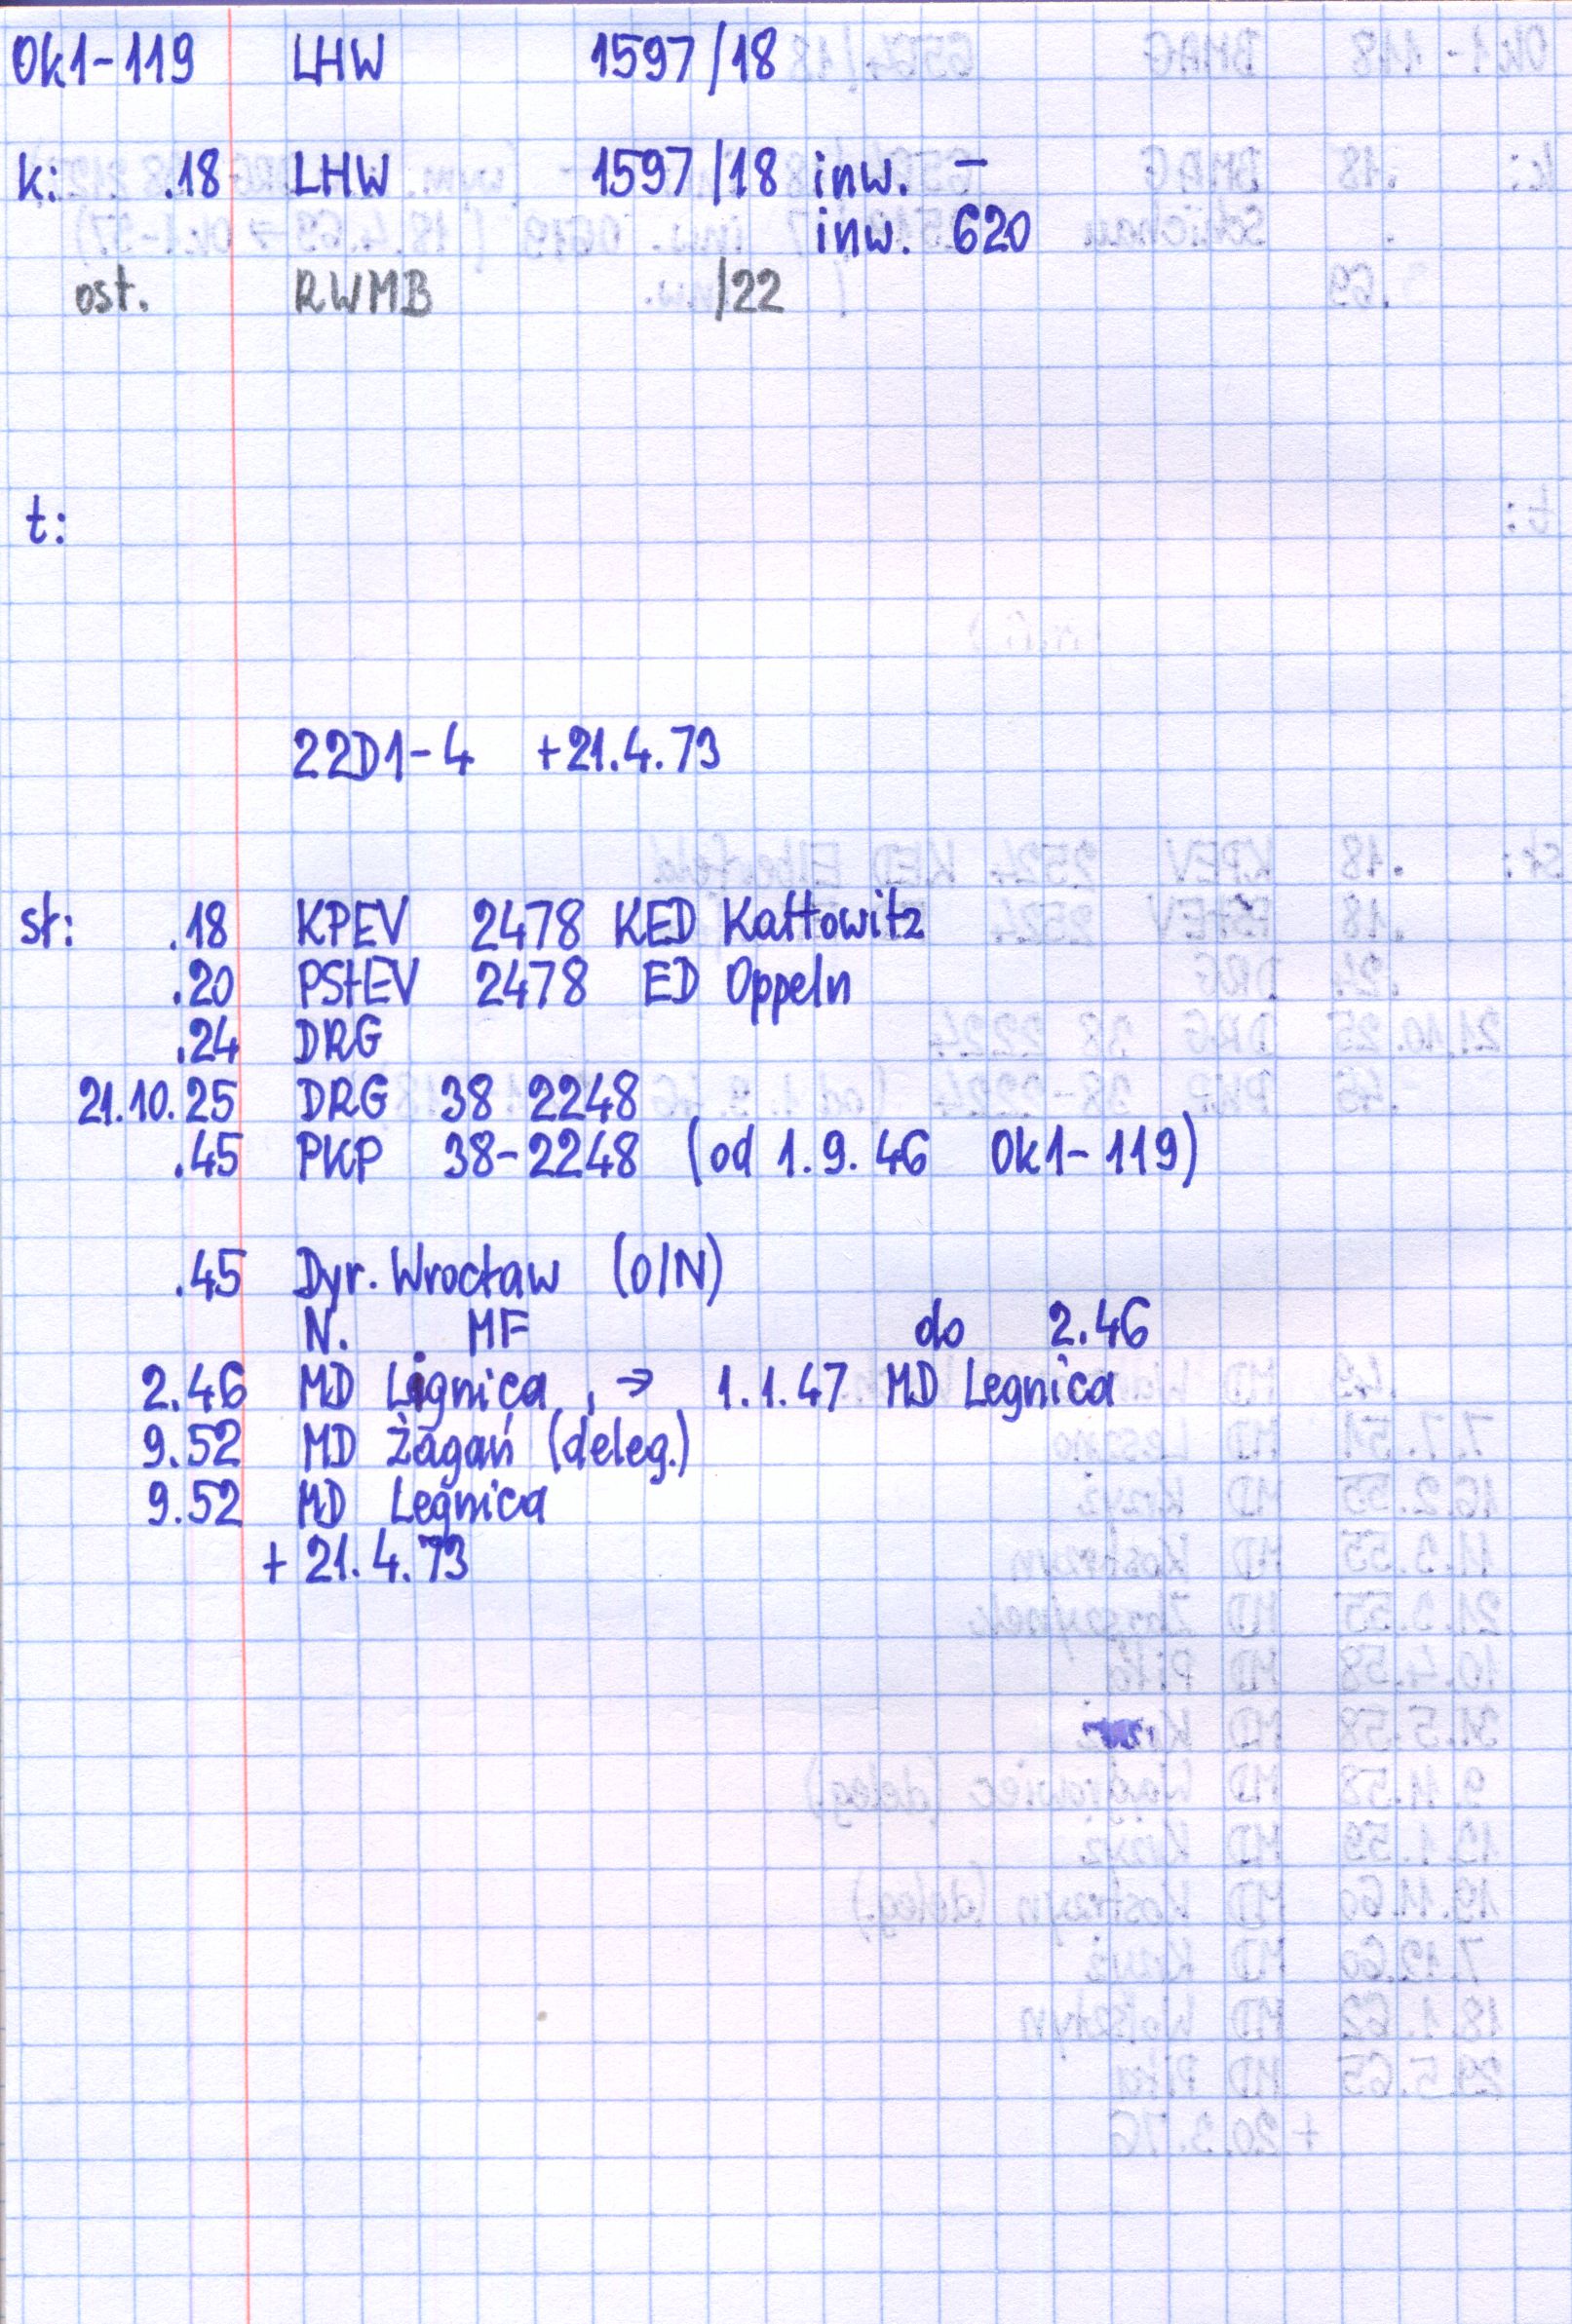 Ok1-119 LHW 1597/18
k: .18 LHW 1597/18 inw. -
inw. 620
ost. RWMB /22
t:
22D1-4 +21.4.73
st: .18 KPEV 2478 KED Kattowitz
.20 PStEV 2478 ED Oppeln
.24 DRG
21.10.25 DRG 38 2248
.45 PKP 38-2248 (od 1.9.46 Ok1-119)
.45 Dyr. Wrocław (O/N)
N. MF do 2.46
2.46 MD Lignica, → 1.1.47 MD Legnica
9.52 MD Żagań (deleg.)
9.52 MD Legnica
+ 21.4.73